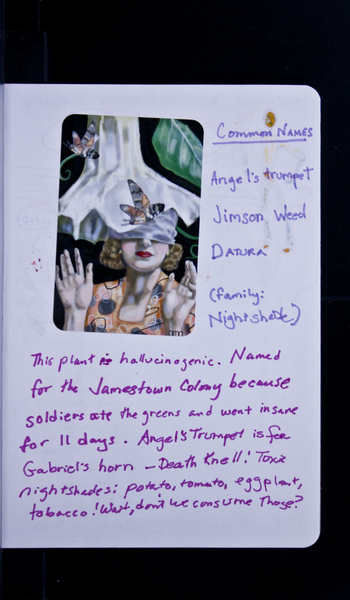 Common Names
Angel's trumpet
Jimson Weed
Datura
(family:
Nightshade)
This plant is hallucinogenic. Named
for the Jamestown Colony because
soldiers ate the greens and went insane
for 11 days. Angel's Trumpet is for
Gabriel's horn – Death Knell! Toxic
nightshades: potato, tomato, eggplant,
tobacco! Wait, don't we consume those?